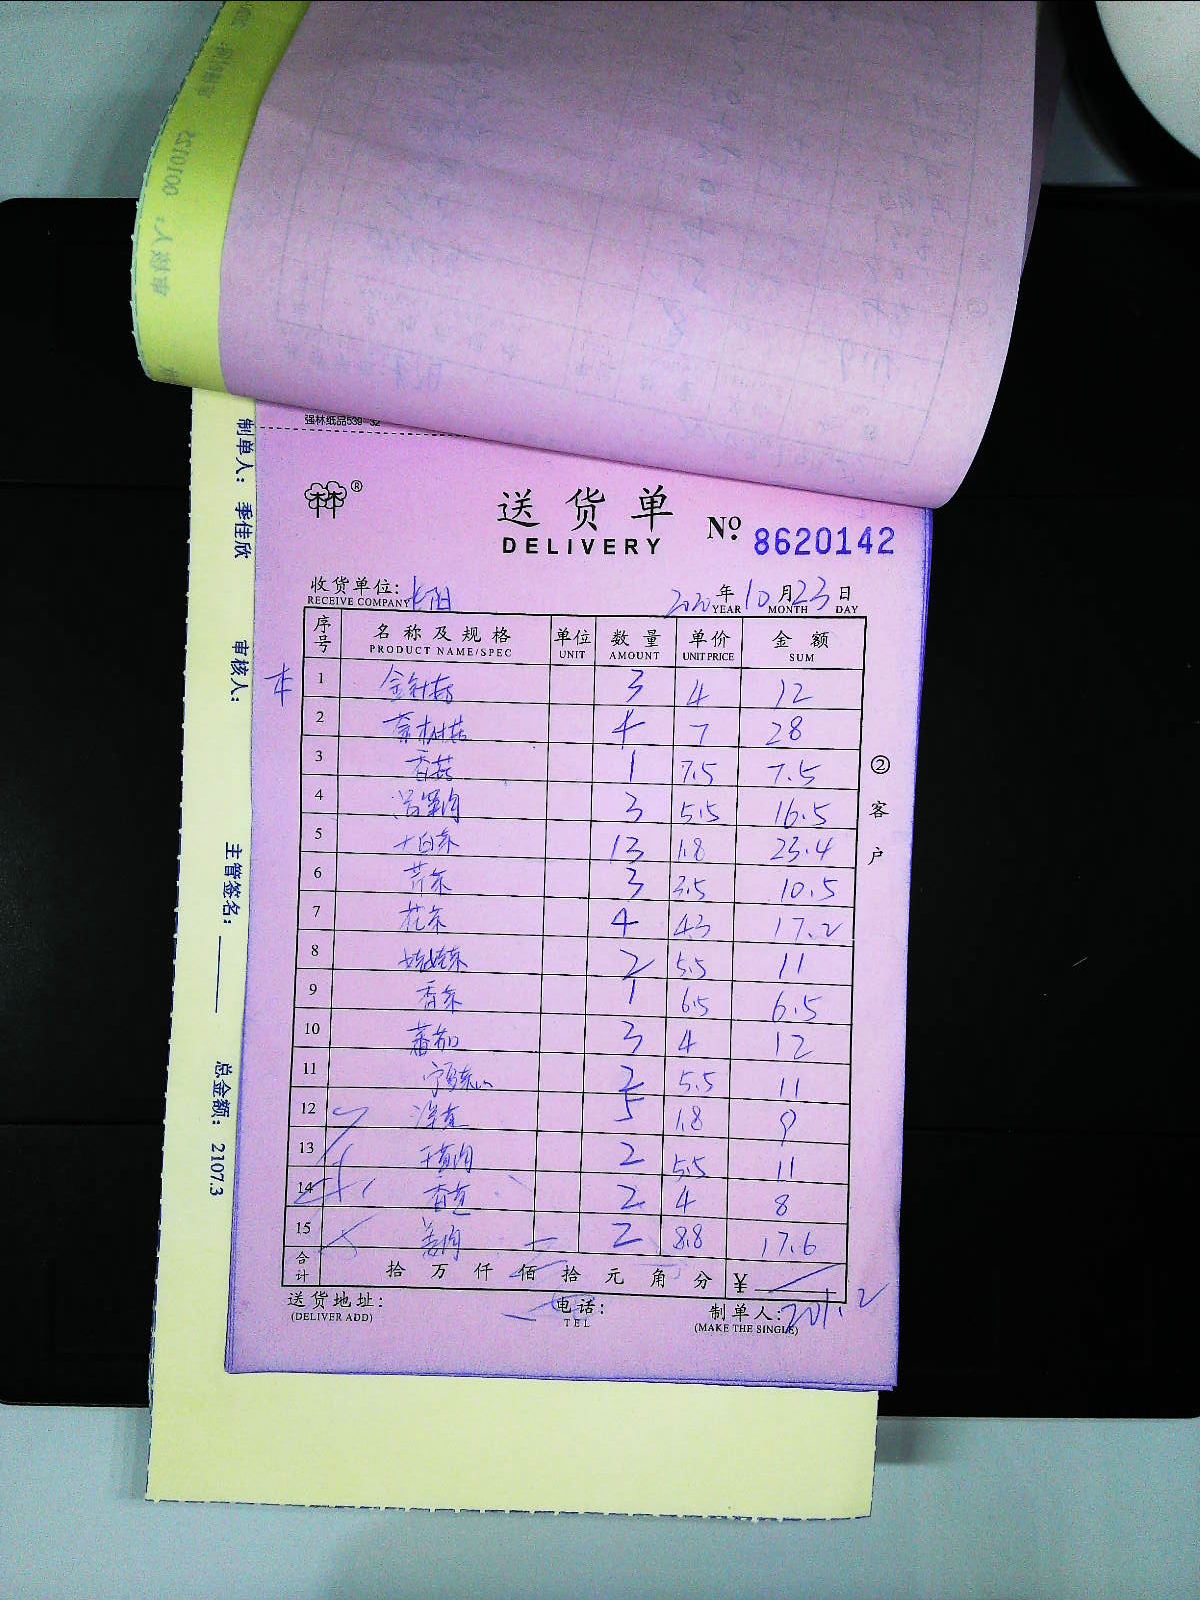 0010125
强林纸品539-32
制单人: 季佳欣
审核人:
主管签名:
总金额: 2107.3
林®
送货单
DELIVERY
Nº 8620142
收货单位:
RECEIVE COMPANY
2020年10月23日
YEAR MONTH DAY
序号 名称及规格 单位 数量 单价 金额
PRODUCT NAME/SPEC UNIT AMOUNT UNIT PRICE SUM
本
1 金针菇 3 4 12
2 茶树菇 4 7 28
3 香菇 1 7.5 7.5
4 3 5.5 16.5
5 大白菜 13 1.8 23.4
6 芹菜 3 3.5 10.5
7 花菜 4 4.3 17.2
8 娃娃菜 2 5.5 11
9 香菜 1 6.5 6.5
10 蕃茄 3 4 12
11 2 5.5 11
12 5 1.8 9
13 2 5.5 11
14 2 4 8
15 姜肉 2 8.8 17.6
合计 拾 万 仟 佰 拾 元 角 分 ¥
201.2
送货地址:
(DELIVER ADD)
电话:
TEL
制单人:
(MAKE THE SINGLE)
②客户